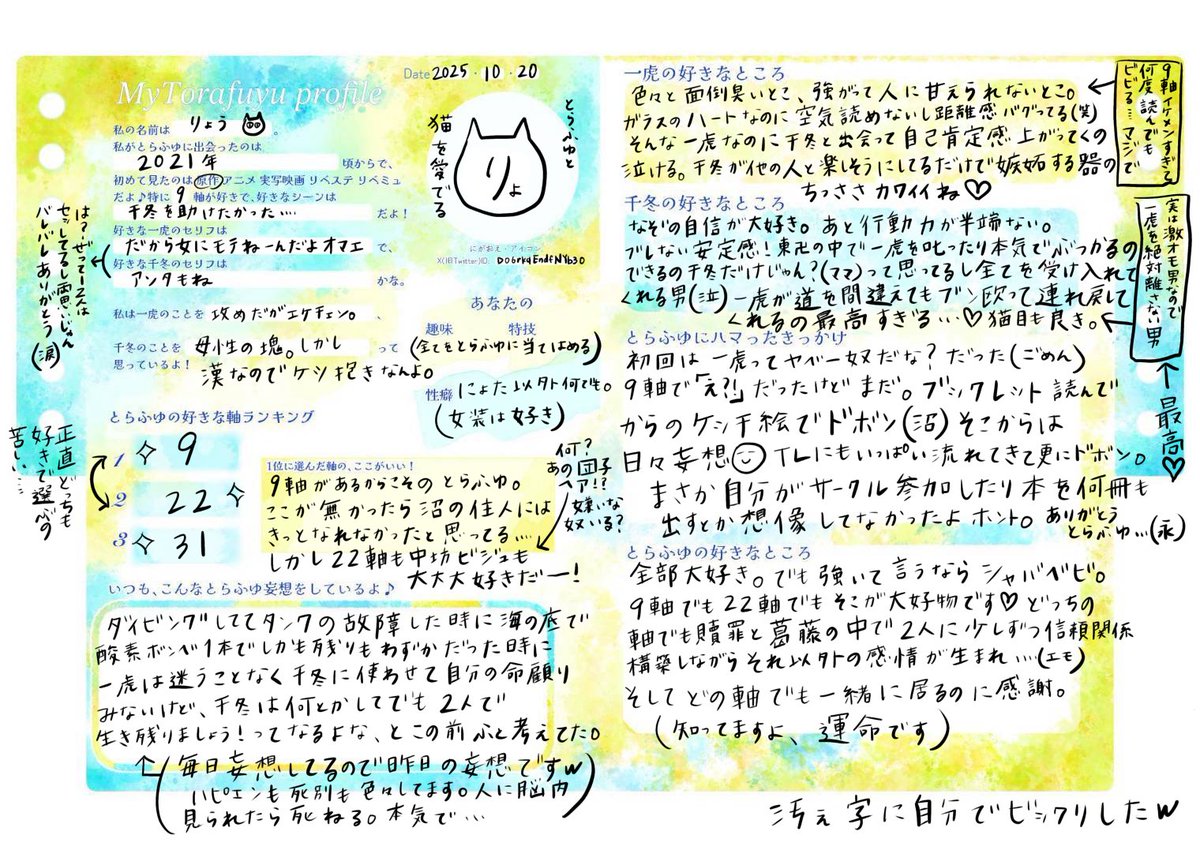 MyTorafuyu profile
Date 2025・10・20
私の名前は りょう
私がとらふゆに出会ったのは
2021年 頃からで、
初めて見たのは 原作 アニメ 実写映画 リベステ リベミュ
だよ♪特に 9 軸が好きで、好きなシーンは
千冬を助けたかった… だよ!
好きな一虎のセリフは
だから女にモテねーんだよオマエ で、
好きな千冬のセリフは
アンタもね かな。
は?ぜってー2人は
セッしてるし雷いじゃん
バレバレありがとう
(涙)
私は一虎のことを 攻めだがエケチェン。、
千冬のことを 母性の塊。しかし って
思っているよ! 漢なのでケシ抱きなんよ。
とらふゆと
猫を愛でる
りょ
にがおえ・アイコン
X(旧Twitter)ID: D06rkqEndfNYb30
あなたの
趣味 特技
(全てをとらふゆに当てはめる)
性癖 にょた以外何でも。
(女装は好き)
とらふゆの好きな軸ランキング
1 9
2 22
3 31
正直どっちも
好きで選ぶの
苦しい…
1位に選んだ軸の、ここがいい!
9軸があるからこそのとらふゆ。
ここが無かったら沼の住人には
きっとなれなかったと思ってる…
しかし22軸も中坊ビジュも
大大大好きだー!
何?
あの団子
ヘア!?
嫌いな
奴いる?
いつも、こんなとらふゆ妄想をしているよ♪
ダイビングしててタンクの故障した時に海の底で
酸素ボンベ1本でしかも残りもわずかだった時に
一虎は迷うことなく千冬に使わせて自分の命顧り
みないけど、千冬は何とかしてでも2人で
生き残りましょう!ってなるよな、とこの前ふと考えてた。
(毎日妄想してるので昨日の妄想ですw
ハピエンも死別も色々してます。人に脳内
見られたら死ねる。本気で…)
一虎の好きなところ
色々と面倒臭いとこ、強がって人に甘えられないとこ。
ガラスのハートなのに空気読めないし距離感バグってる(笑)
そんな一虎なのに千冬と出会って自己肯定感上がってくの
泣ける。千冬が他の人と楽しそうにしてるだけで嫉妬する器の
ちっささカワイイね♡
9軸イケメンすぎる
何度読んでも
ビビる…マジで
千冬の好きなところ
なぞの自信が大好き。あと行動力が半端ない。
ブレない安定感!東卍の中で一虎を叱ったり本気でぶつかるの
できるの千冬だけじゃん?(ママ)って思ってるし全てを受け入れて
くれる男(泣)一虎が道を間違えてもブン殴って連れ戻して
くれるの最高すぎる…♡猫目も良き。
実は激オモ男なので
一虎を絶対離さない男
最高♡
とらふゆにハマったきっかけ
初回は一虎ってヤベー奴だな?だった(ごめん)
9軸で「え?!」だったけどまだ。ブックレット読んで
からのケンチ絵でドボン(沼)そこからは
日々妄想 TLにもいっぱい流れてきて更にドボン。
まさか自分がサークル参加したり本を何冊も
出すとか想像してなかったよホント。ありがとう
とらふゆ…(永)
とらふゆの好きなところ
全部大好き。でも強いて言うならシャバベビ。
9軸でも22軸でもそこが大好物です♡どっちの
軸でも贖罪と葛藤の中で2人に少しずつ信頼関係
構築しながらそれ以外の感情が生まれ…(エモ)
そしてどの軸でも一緒に居るのに感謝。
(知ってますよ、運命です)
汚ぇ字に自分でビックリしたw